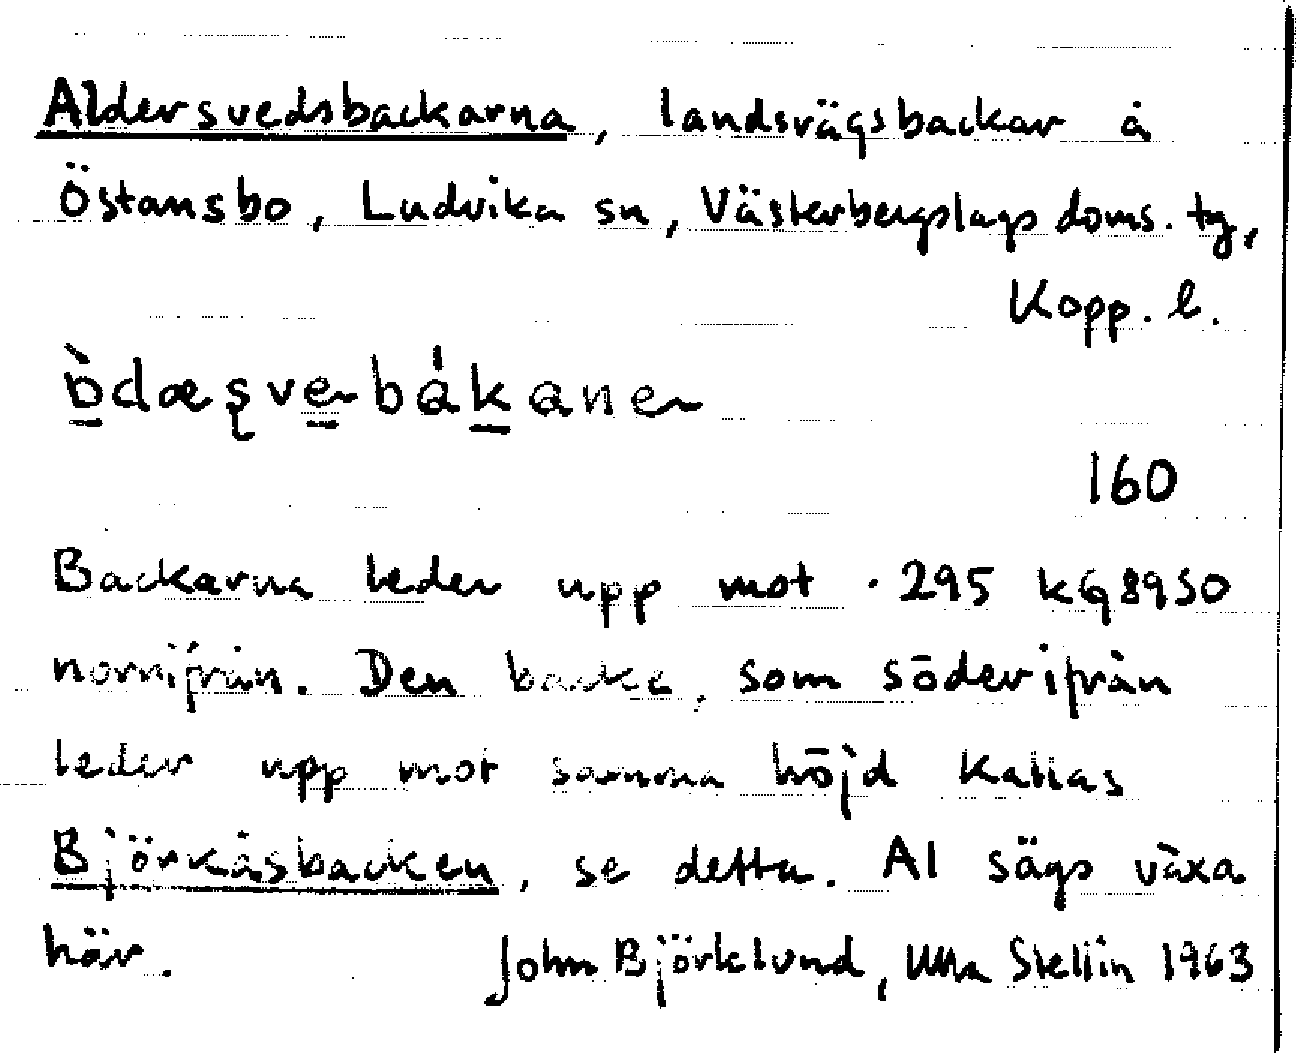 Aldersvedsbackarna, landsvägsbackar å
Östansbo, Ludvika sn, Västerbergslags doms. tg,
Kopp. l.
160
Backarna leder upp mot . 295 kG8950
norrifrån. Den backe, som söderifrån
leder upp mot samma höjd kallas
Björkåsbacken, se detta. Al sägs växa
här. John Björklund, Ulla Stellin 1963